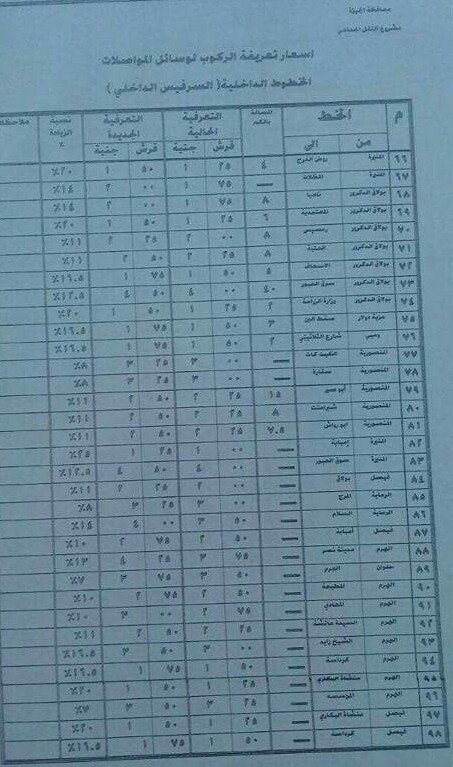 محافظة الجيزة
مشروع النقل الجماعي
اسعار تعريفة الركوب لوسائل المواصلات
الخطوط الداخلية (السرفيس الداخلي)
م الخط المسافة بالكم التعريفة الحالية التعريفة الجديدة نسبة الزيادة % ملاحظات
من الى قرش جنية قرش جنية
٦٦ المنيرة روض الفرج ٤ ٢٥ ١ ٥٠ ١ ٢٠٪
٦٧ المنيرة المظلات — ٧٥ ١ ٠٠ ٢ ١٤٪
٦٨ بولاق الدكرور ٨ ٧٥ ١ ٠٠ ٢ ١٤٪
٦٩ بولاق الدكرور المعتمدية ٦ ٢٥ ١ ٥٠ ١ ٢٠٪
٧٠ بولاق الدكرور رمسيس ٨ ٠٠ ٢ ٢٥ ٢ ١١٪
٧١ بولاق الدكرور الجيزة ٨ ٢٥ ٢ ٥٠ ٢ ١١٪
٧٢ بولاق الدكرور الاسعاف ٥ ٥٠ ١ ٧٥ ١ ١٦.٥٪
٧٣ بولاق الدكرور سوق العبور ٤٠ ٠٠ ٤ ٥٠ ٤ ١٢.٥٪
٧٤ بولاق الدكرور وزارة الزراعة ٢ ٢٥ ١ ٥٠ ١ ٢٠٪
٧٥ عزبة دولار مسقط ٣ ٥٠ ١ ٧٥ ١ ١٦.٥٪
٧٦ شارع الثلاثيني ٢
٧٧ المنصورية الكيت كات — ٠٠ ٣ ٢٥ ٣ ٨٪
٧٨ المنصورية سقارة — ٠٠ ٣ ٢٥ ٣ ٨٪
٧٩ المنصورية ابو صير ١٥ ٢٥ ٢ ٥٠ ٢ ١١٪
٨٠ المنصورية شبرامنت ٨ ٢٥ ٢ ٥٠ ٢ ١١٪
٨١ المنصورية ابو رواش ٧.٥ ٢٥ ٢ ٥٠ ٢ ١١٪
٨٢ المنيرة إمبابة — ٠٠ ١ ٢٥ ١
٨٣ المنيرة سوق العبور — ٠٠ ٤ ٥٠ ٤ ١٢.٥٪
٨٤ فيصل بولاق — ٠٠ ٢ ٢٥ ٢ ١١٪
٨٥ الرماية المرج — ٠٠ ٣ ٢٥ ٣ ٨٪
٨٦ الرماية السلام — ٥٠ ٣ ٠٠ ٤ ١٤٪
٨٧ فيصل امبابة — ٥٠ ٢ ٧٥ ٢ ١٠٪
٨٨ الهرم مدينة نصر — ٧٥ ٣ ٢٥ ٤ ١٣٪
٨٩ حلوان الهرم — ٥٠ ٣ ٧٥ ٣ ٧٪
٩٠ الهرم المطبعة — ٥٠ ٢ ٧٥ ٢ ١٠٪
٩١ الهرم المعادي — ٧٥ ٢ ٠٠ ٣ ١٠٪
٩٢ الهرم السيدة عائشة — ٢٥ ٢ ٥٠ ٢ ١١٪
٩٣ الهرم الشيخ زايد — ٠٠ ٣ ٥٠ ٣ ١٦.٥٪
٩٤ الهرم كرداسة — ٥٠ ١ ٧٥ ١ ١٦.٥٪
٩٥ الهرم منشاة البكاري — ٢٥ ١ ٥٠ ١ ٢٠٪
٩٦ الهرم — ٥٠ ٣ ٧٥ ٣ ٧٪
٩٧ فيصل منشاة البكاري — ٢٥ ١ ٥٠ ١ ٢٠٪
٩٨ فيصل كرداسة — ٥٠ ١ ٧٥ ١ ١٦.٥٪